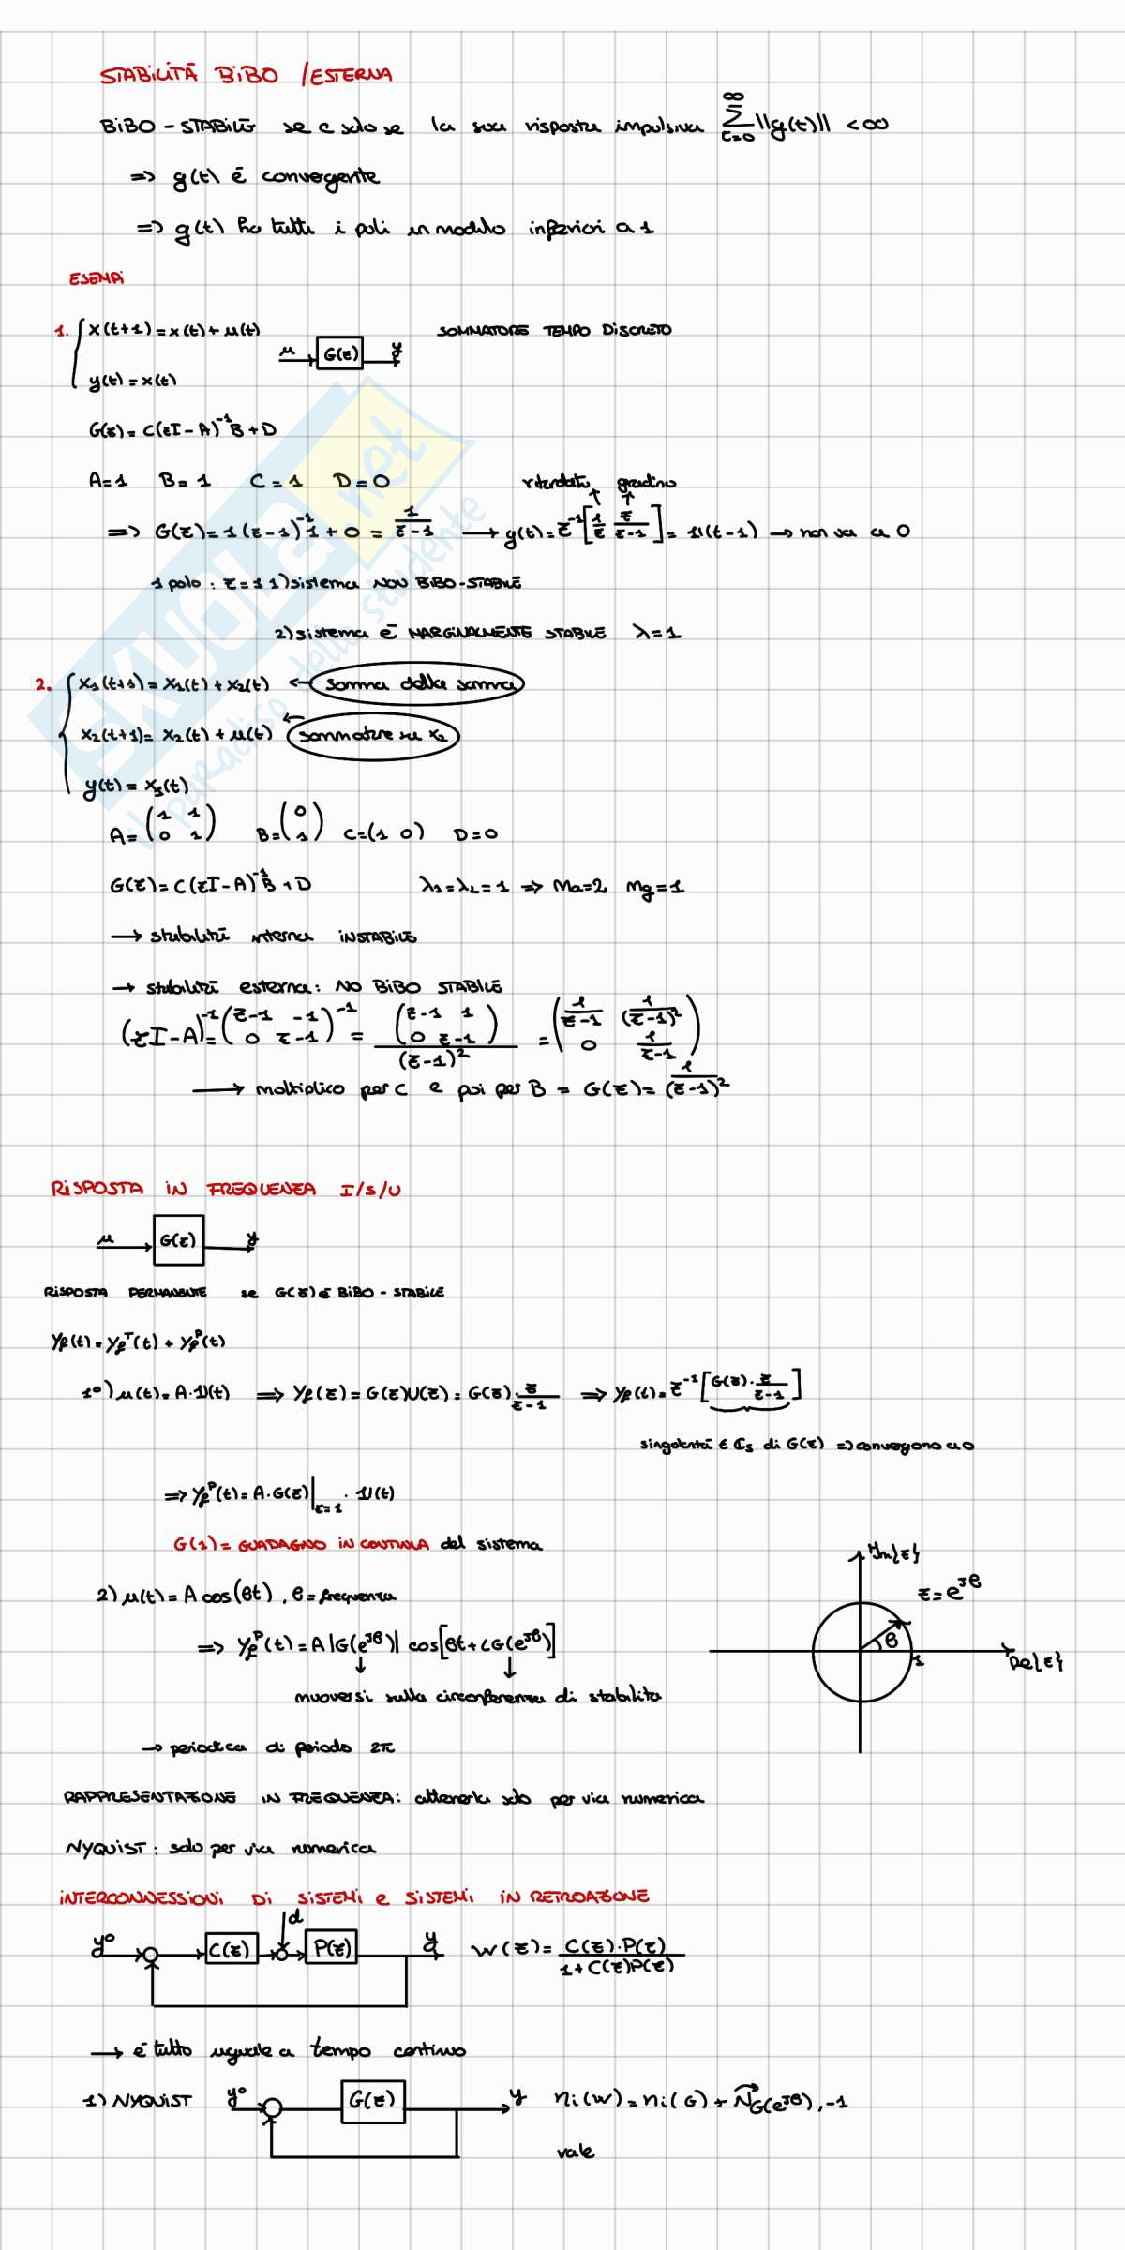 STABILITÀ BIBO / ESTERNA
BIBO - STABILE se e solo se la sua risposta impulsiva ∞∑t=0 ||g(t)|| < ∞
=> g(t) è convergente
=> g(t) ha tutti i poli in modulo inferiori a 1
ESEMPI
1. { x(t+1) = x(t) + u(t) SOMMATORE TEMPO DISCRETO
u → G(z) → y
y(t) = x(t)
G(z) = C(zI - A)⁻¹B + D
A=1 B=1 C=1 D=0 ritardato gradino
=> G(z) = 1(z-1)⁻¹1 + 0 = 1/(z-1) → g(t) = Z⁻¹[1/z z/(z-1)] = 1(t-1) → non va a 0
1 polo : z=1 1) sistema NON BIBO-STABILE
2) sistema è MARGINALMENTE STABILE λ=1
2. { x₁(t+1) = x₁(t) + x₂(t) ← somma della somma
x₂(t+1) = x₂(t) + u(t) ← sommatore su x₂
y(t) = x₁(t)
A = (1 1; 0 1) B = (0; 1) C = (1 0) D = 0
G(z) = C(zI - A)⁻¹B + D λ₁=λ₂=1 => Ma=2 Mg=1
→ stabilità interna INSTABILE
→ stabilità esterna: NO BIBO STABILE
(zI-A)⁻¹ = (z-1 -1; 0 z-1)⁻¹ = (z-1 1; 0 z-1)/(z-1)² = (1/(z-1) 1/(z-1)²; 0 1/(z-1))
→ moltiplico per C e poi per B = G(z) = 1/(z-1)²
RISPOSTA IN FREQUENZA I/S/U
u → G(z) → y
RISPOSTA PERMANENTE se G(z) è BIBO - STABILE
yf(t) = yfᵀ(t) + yfᴾ(t)
1°) u(t) = A·1(t) => yf(z) = G(z)U(z) = G(z)·z/(z-1) => yf(t) = Z⁻¹[G(z)·z/(z-1)]
singolarità ∈ ℂs di G(z) => convergono a 0
=> yfᴾ(t) = A·G(z)|z=1 · 1(t)
G(1) = GUADAGNO IN CONTINUA del sistema
Im{z}
2) u(t) = A cos(θt), θ = frequenza
z = e^jθ
=> yfᴾ(t) = A|G(e^jθ)| cos[θt + ∠G(e^jθ)]
θ
1
Re{z}
muoversi sulla circonferenza di stabilità
→ periodica di periodo 2π
RAPPRESENTAZIONE IN FREQUENZA: ottenerla solo per via numerica
NYQUIST: solo per via numerica
INTERCONNESSIONI DI SISTEMI e SISTEMI IN RETROAZIONE
d
y° C(z) P(z) y W(z) = C(z)·P(z)/(1+C(z)P(z))
→ è tutto uguale a tempo continuo
1) NYQUIST y° G(z) y ni(W) = ni(G) + N⃗G(e^jθ),-1
vale